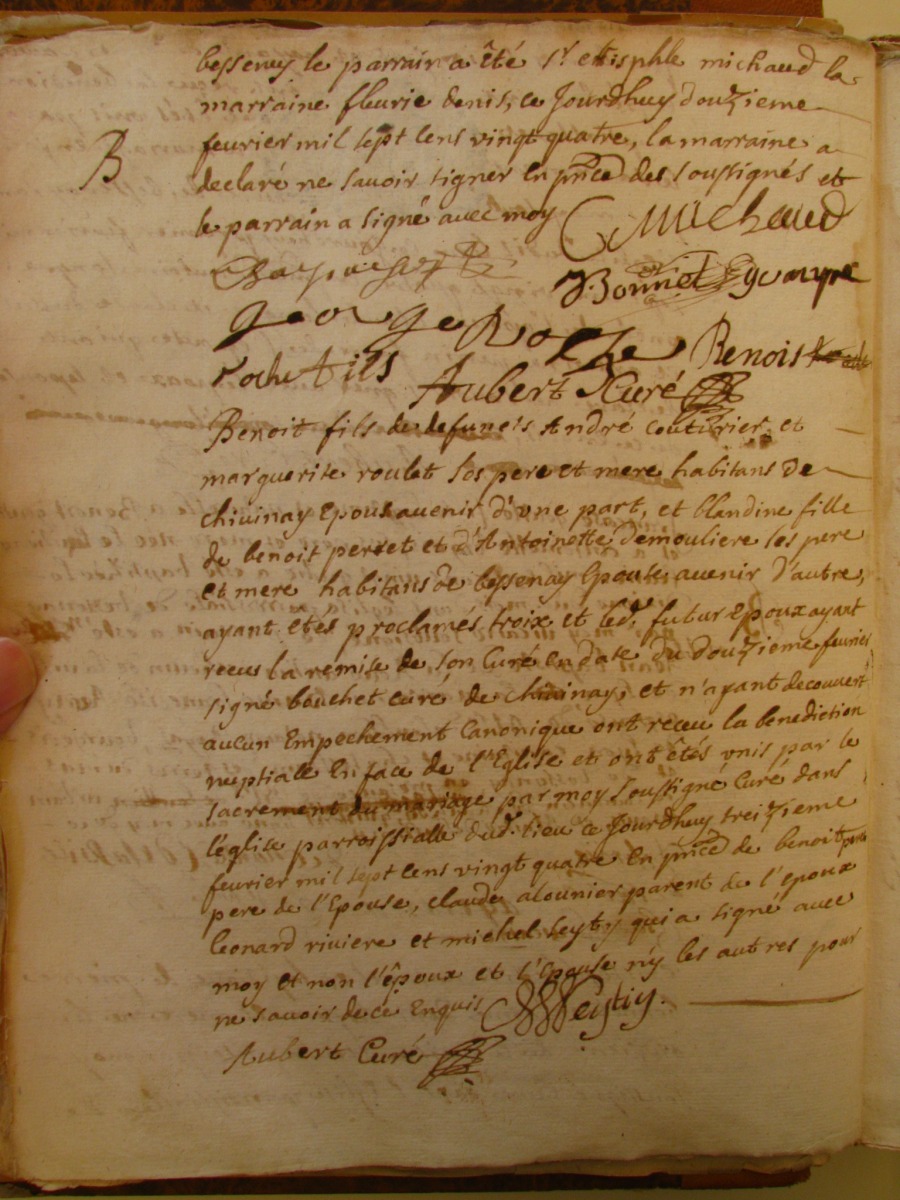 bessenay le parrain a êté Sr michaud la
marraine fleurie denis, ce Jourdhuy douzieme
fevrier mil sept cens vingt quatre, la marraine a
B
declaré ne savoir signer En pñce des soussignés et
le parrain a signé avec moy CMichaud
Bonnet
George Roche Benoist
roche fils Aubert Curé
Benoit fils de defuncts André couturier, et
marguerite roulet ses pere et mere habitans de
chivinay Epoux avenir d'vne part, et blandine fille
de benoit perret et d'Antoinette demouliere ses pere
et mere habitans de bessenay Epouse avenir d'autre,
ayant étés proclamés troix et led. futur Epoux ayant
receu la remise de son Curé en date du douzieme fevrier
signé bouchet curé de chivinay, et n'ayant decouvert
aucun Empechement Canonique ont receu la benediction
nuptialle En face de l'Eglise et ont êtés vnis par le
sacrement du mariage par moy soussigné Curé dans
l'église parroissialle dud. lieu ce Jourdhuy treizieme
fevrier mil sept cens vingt quatre En pñce de benoit perret
pere de l'Epouse, claude alounier parent de l'epoux
leonard riviere et michel seyty qui a signé avec
moy et non l'époux et l'Epouse n'y les autres pour
ne savoir de ce Enquis MSeytiy.
Aubert Curé